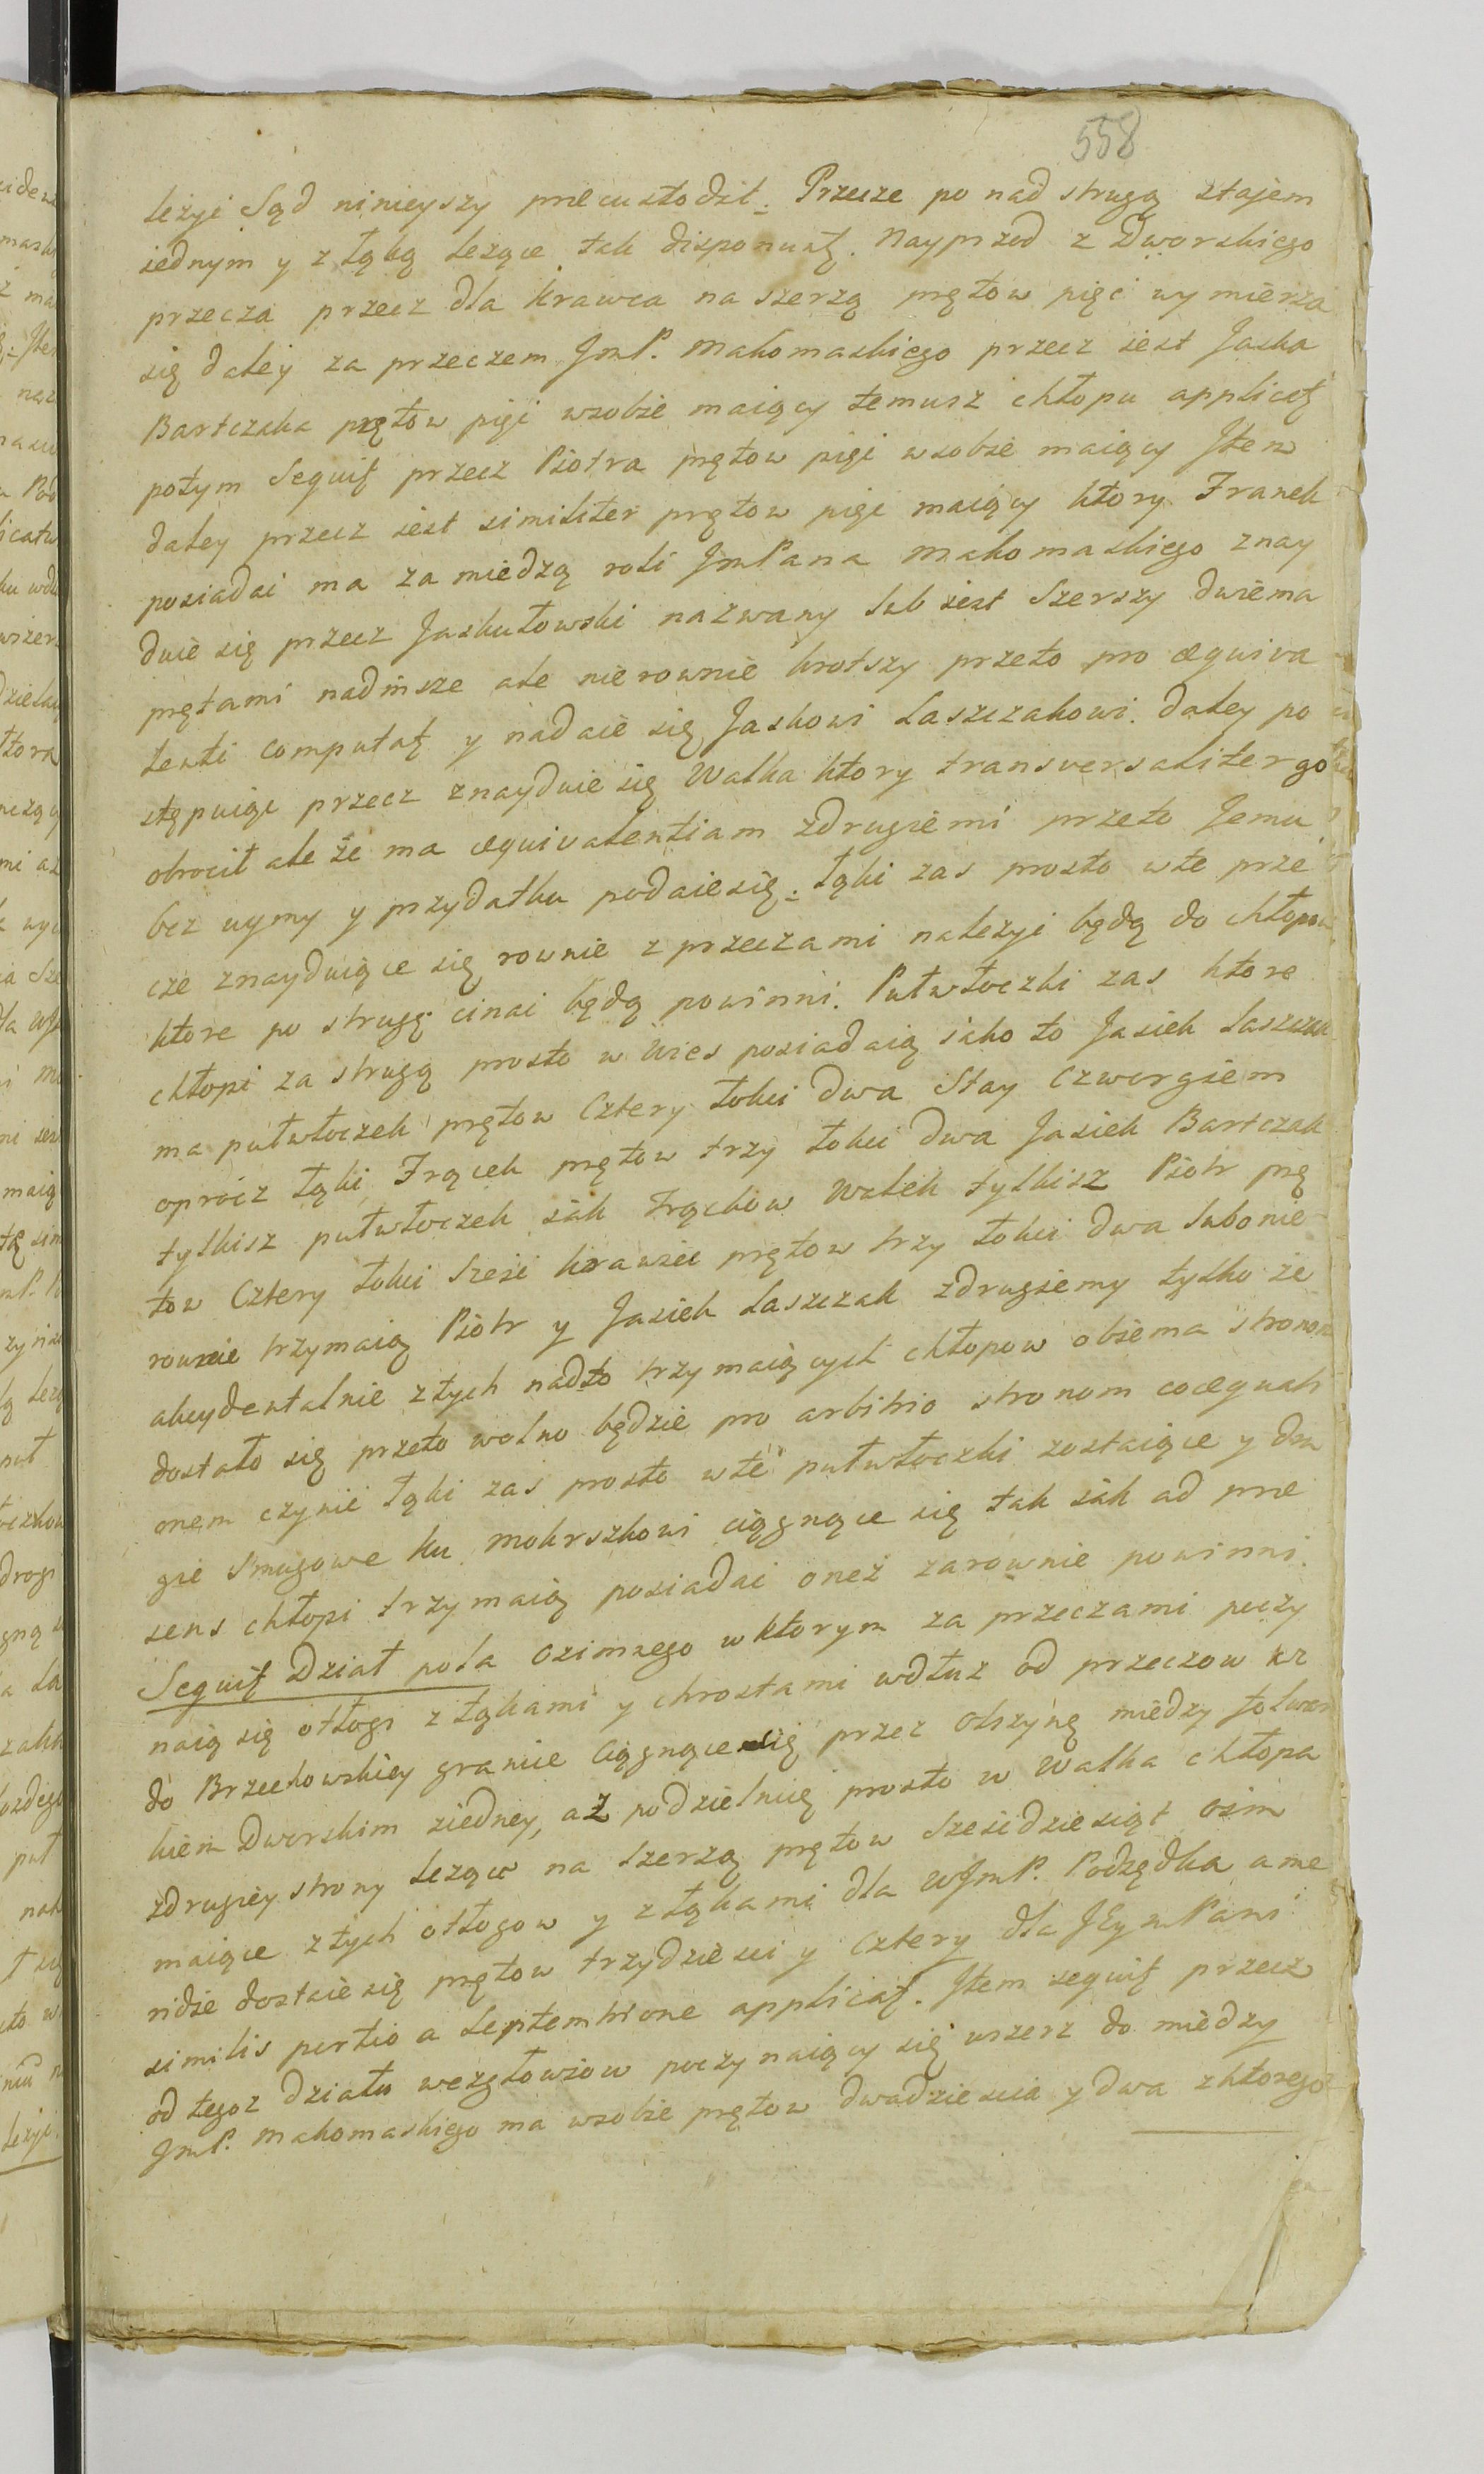 558
leżyć Sąd ninieyszy præcustodit. Przecze po nad strugą stajem
iednym y z łąką leząće tak disponuntr. Nayprzod z Dworskiego
przecza przecz dla Krawca na szerzą prętow pięć wymierza
się daley za przeczem JmP. Makomaskiego przecz iest Jaska
Bartczaka prętow pięć wsobie maiący temusz chłopu applicatr
potym Sequitr przecz Piotra prętow pięć wsobie maiący Item
daley przecz iest similiter prętow pięć maiący ktory Franek
posiadać ma za miedzą roli JmPana Makomaskiego znay
duie się przecz Jaskułowski nazwany lub iest Szerszy dwiema
prętami nad insze ale nierownie krotszy przeto pro æquiva
lenti computatr y nadaie się Jaskowi Laszczakowi. daley po
stępuiąc przecz znayduie się Walka ktory transversaliter go
obrocił ale że ma æquivalentiam zdrugiemi przeto Jemu
bez uymy y przydatku podaie się. Łąki zas prosto w te prze
cze znayduiące się rownie z przeczami należyć będą do chłopow
ktore po strugę cinać będą powinni. Pułwłoczki zas ktore
chłopi za strugą prosto w Wies posiadaią iako to Jasiek Laszczak
ma pułwłoczek prętow Cztery łokci dwa Stay Czworgiem
oprocz łąki Frącek prętow trzy łokci dwa Jasiek Bartczak
tylkisz pułwłoczek iak Frąckow Walek tylkisz Piotr prę
tow Cztery łokci Sześć krawiec prętow trzy łokci dwa lubo nie
rownie trzymaią Piotr y Jasiek Laszczak zdrugiemy tylko że
akcydentalnie z tych nadto trzymaiących chłopow obiema stronom
dostało się przeto wolno będzie pro arbitrio stronom coæquati
onem czynić łąki zas prosto w te pułwłoczki zostaiące y dru
gie smugowe ku Mokrszkowi ciągnące się tak iak ad præ
sens chłopi trzymaią posiadać oneż zarownie powinni.
Sequitr Dział pola Ozimnego w ktorym za przeczami poczy
naią się odłogi z łąkami y chrostami wdłuż od przeczow az
do Brzechowskiey granice Ciągnące się przez Olszynę między folwar
kiem Dworskim ziedney, aż podzielnicą prosto w Walka chłopa
zdrugiey strony lezące na szerzą prętow Sześćdziesiąt osim
maiące z tych odłogow y z łąkami dla WJmP. Podsędka a me
ridie dostaie się prętow trzydzieści y cztery dla JEymPani
similis portio a Septemtrione applicatr. Item sequitr przecz
od tegoz działu wezgłowiow poczynaiący się wszerz do miedzy
JmP. Makomaskiego ma wsobie prętow dwadzieścia y dwa z ktorego